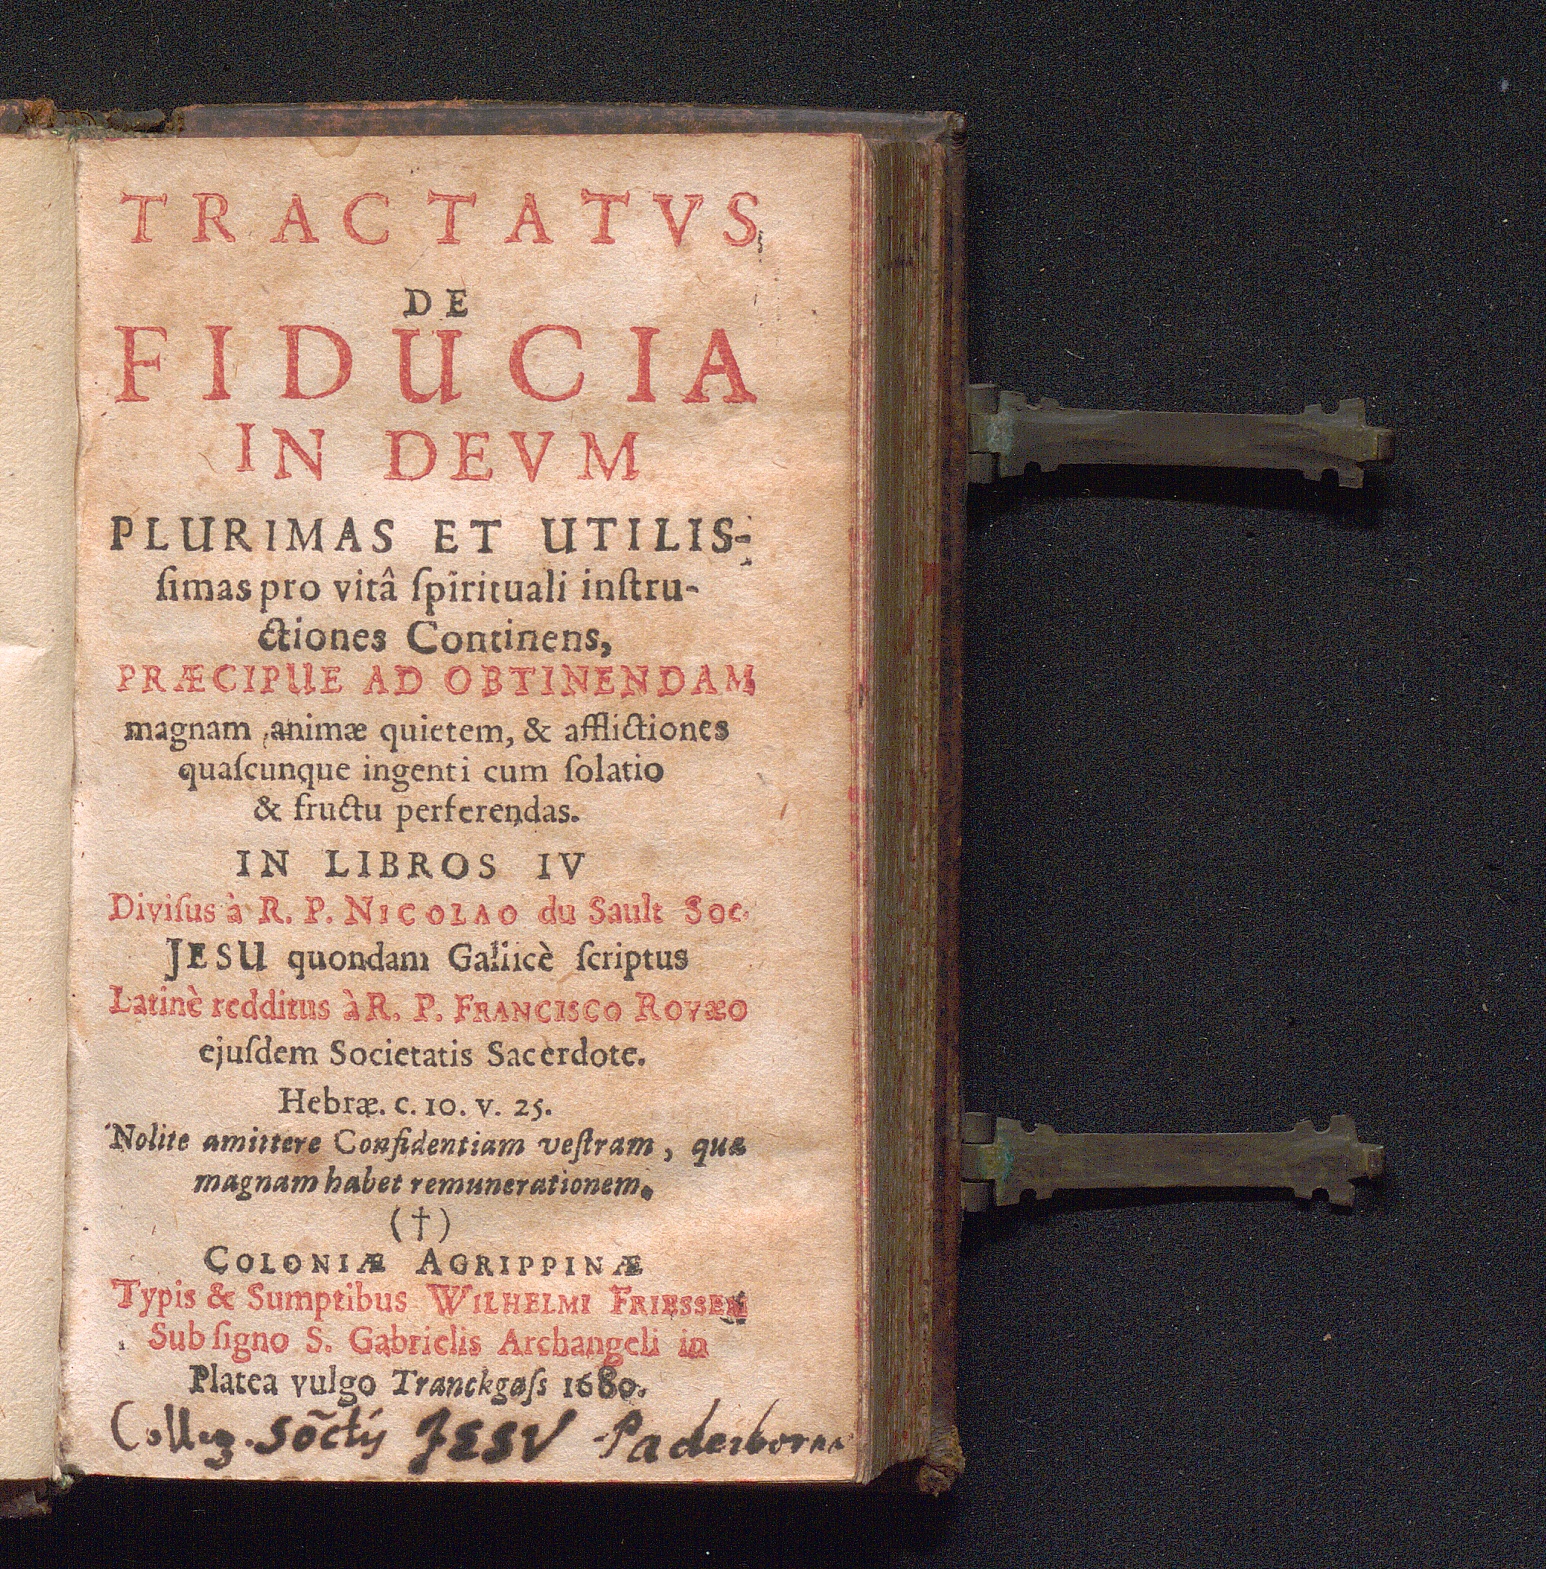 TRACTATVS
DE
FIDUCIA
IN DEVM
PLURIMAS ET UTILIS-
ſimas pro vitâ ſpirituali inſtru-
ctiones Continens,
PRÆCIPUE AD OBTINENDAM
magnam animæ quietem, & afflictiones
quaſcunque ingenti cum ſolatio
& fructu perferendas.
IN LIBROS IV
Diviſus à R. P. NICOLAO du Sault Soc.
JESU quondam Gallicè ſcriptus
Latinè redditus à R. P. FRANCISCO ROVÆO
ejuſdem Societatis Sacerdote.
Hebræ. c. 10. v. 25.
Nolite amittere Confidentiam veſtram, quæ
magnam habet remunerationem.
(†)
COLONIÆ AGRIPPINÆ
Typis & Sumptibus WILHELMI FRIESSEM
Sub ſigno S. Gabrielis Archangeli in
Platea vulgo Tranckgaſs 1680.
Colleg. Sõctis JESV Paderborna